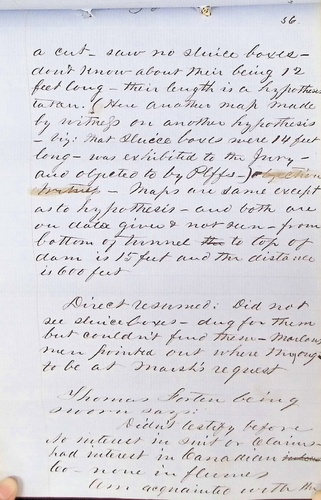 56.
a cut - saw no sluice boxes -
don't know about their being 12
feet long - their length is a hypothesis
taken. (Here another map made
by witness on another hypothesis
- viz: that sluice boxes were 14 feet
long - was exhibited to the Jury -
and objected to by Plffs -) objection
- Maps are same except
as to hypothesis - and both are
on data given & not seen - from
bottom of tunnel to top of
dam is 15 feet and the distance
is 600 feet
Direct resumed: Did not
see sluice boxes - dug for them
but couldn't find them -
men pointed out where
to be at Marsh's request
Thomas being
sworn says:
Didn't testify before
No interest in suit or claims -
had interest in Canadian
Co - none in flumes
Am acquainted with the